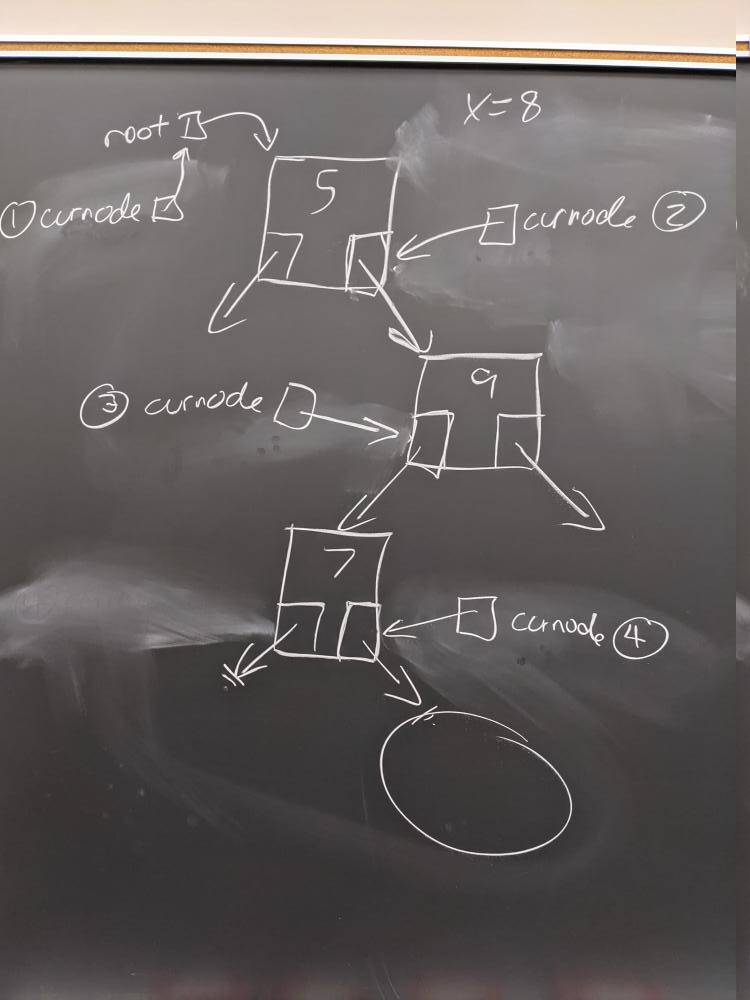 x=8
root
5
① curnode
curnode ②
9
③ curnode
7
curnode ④